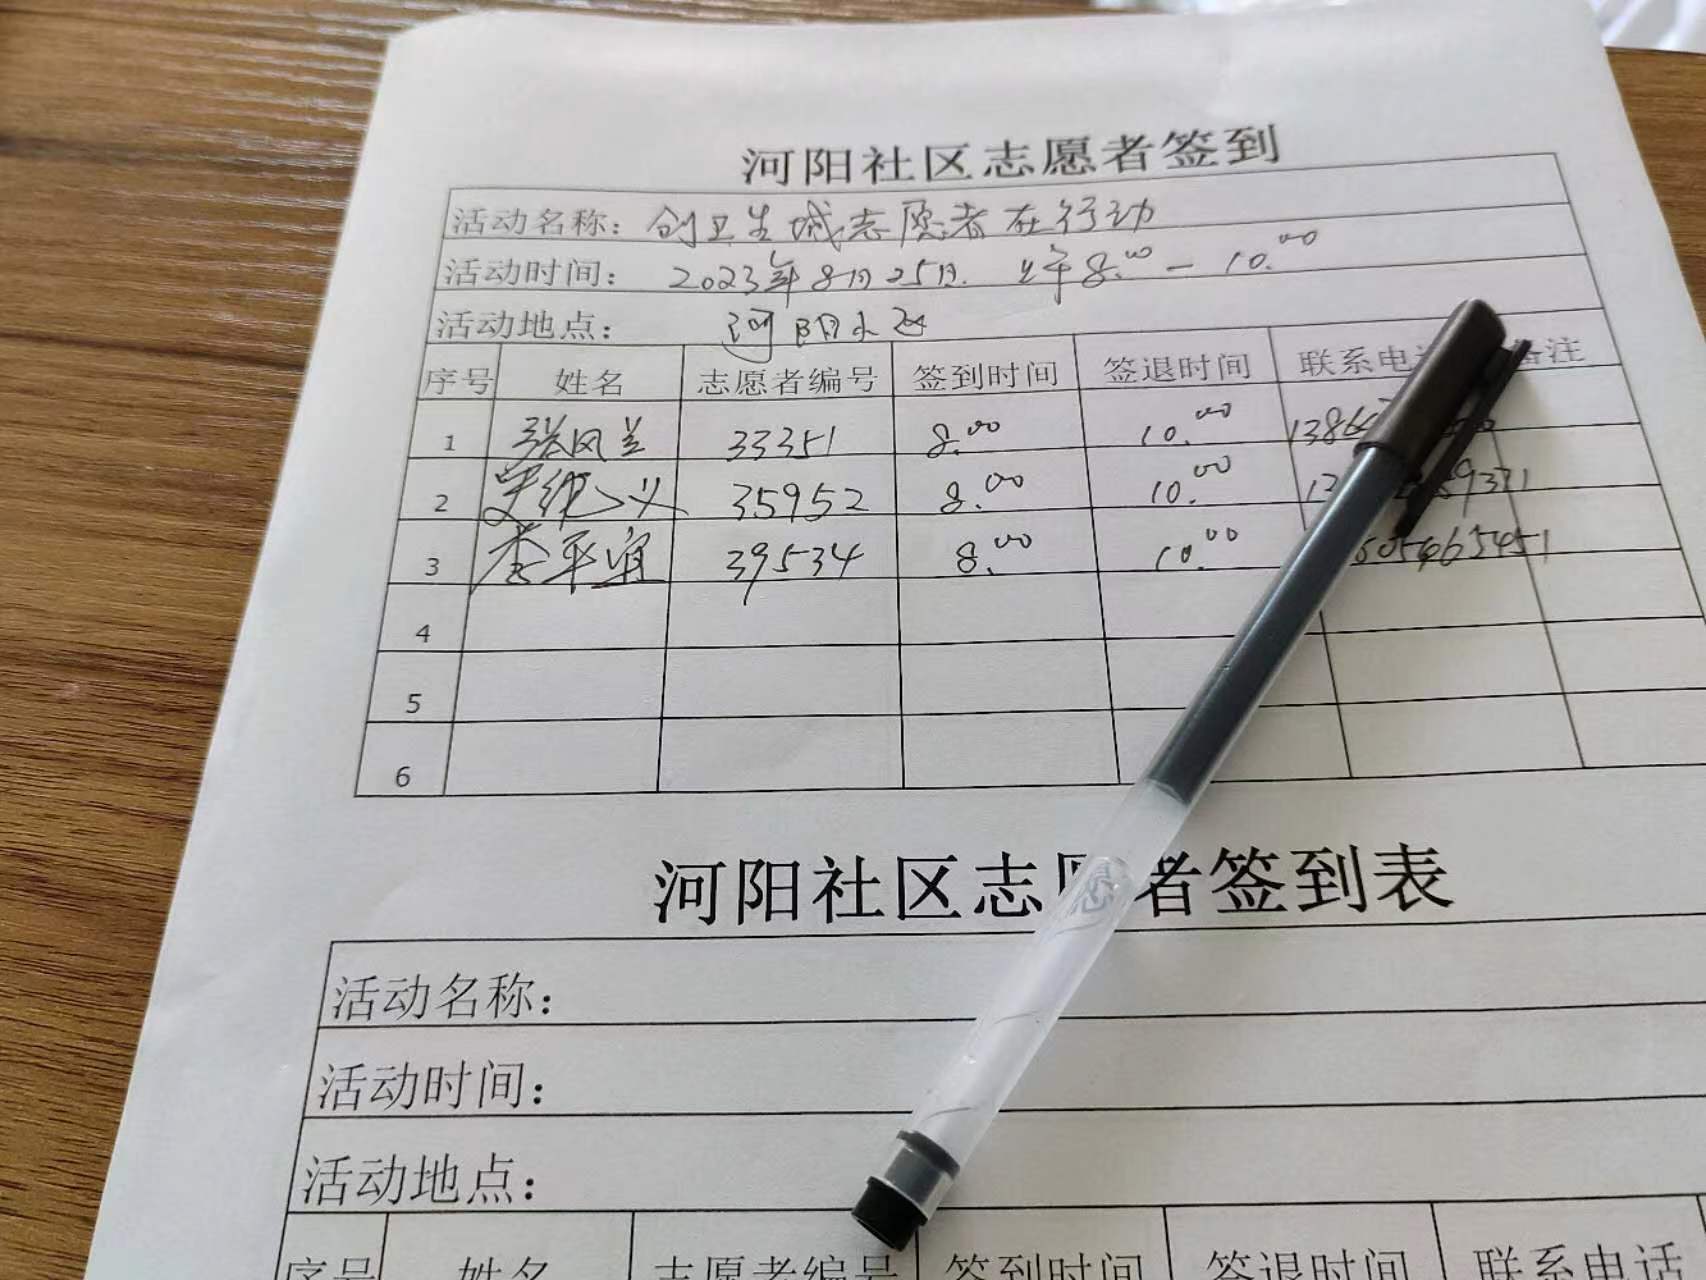 河阳社区志愿者签到
活动名称：创卫生城志愿者在行动
活动时间：2023年8月25日 上午8:00 — 10:00
活动地点：河阳小区
序号 姓名 志愿者编号 签到时间 签退时间 联系电 备注
1 张风兰 33351 8:00 10:00 1386
2 35952 8:00 10:00 9371
3 李平宜 39534 8:00 10:00 505465451
4
5
6
河阳社区志愿者签到表
活动名称：
活动时间：
活动地点：
序号 姓名 志愿者编号 签到时间 签退时间 联系电话